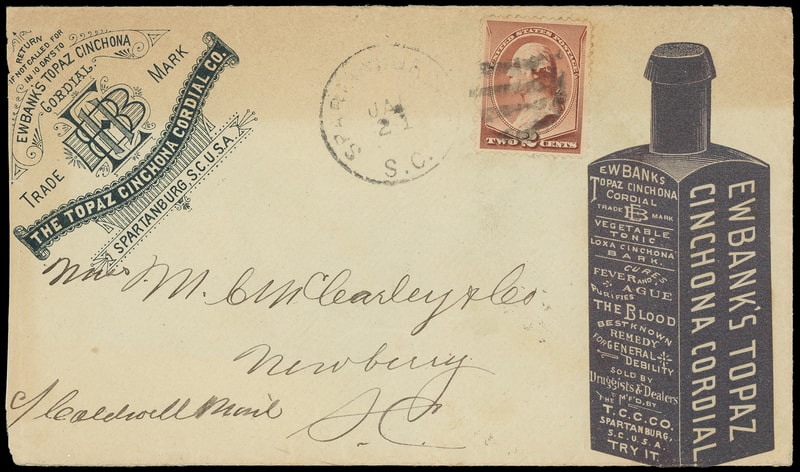 RETURN
IF NOT CALLED FOR
IN 10 DAYS TO
EWBANK'S TOPAZ CINCHONA
CORDIAL
TRADE MARK
THE TOPAZ CINCHONA CORDIAL CO.
SPARTANBURG, S.C. U.S.A.
SPARTANBURG
JA
21
S.C.
UNITED STATES POSTAGE
TWO 2 CENTS
M.
& Co
Newberry
S.C.
c/ Caldwell
EWBANKS
TOPAZ CINCHONA
CORDIAL
TRADE EB MARK
VEGETABLE
TONIC
LOXA CINCHONA
BARK.
CURES
FEVER AND
AGUE
PURIFIES
THE BLOOD
BEST KNOWN
REMEDY
FOR GENERAL
DEBILITY
SOLD BY
Druggists & Dealers
M'F'D. BY
THE
T.C.C.CO.
SPARTANBURG,
S.C. U.S.A.
TRY IT.
EWBANK'S TOPAZ
CINCHONA CORDIAL